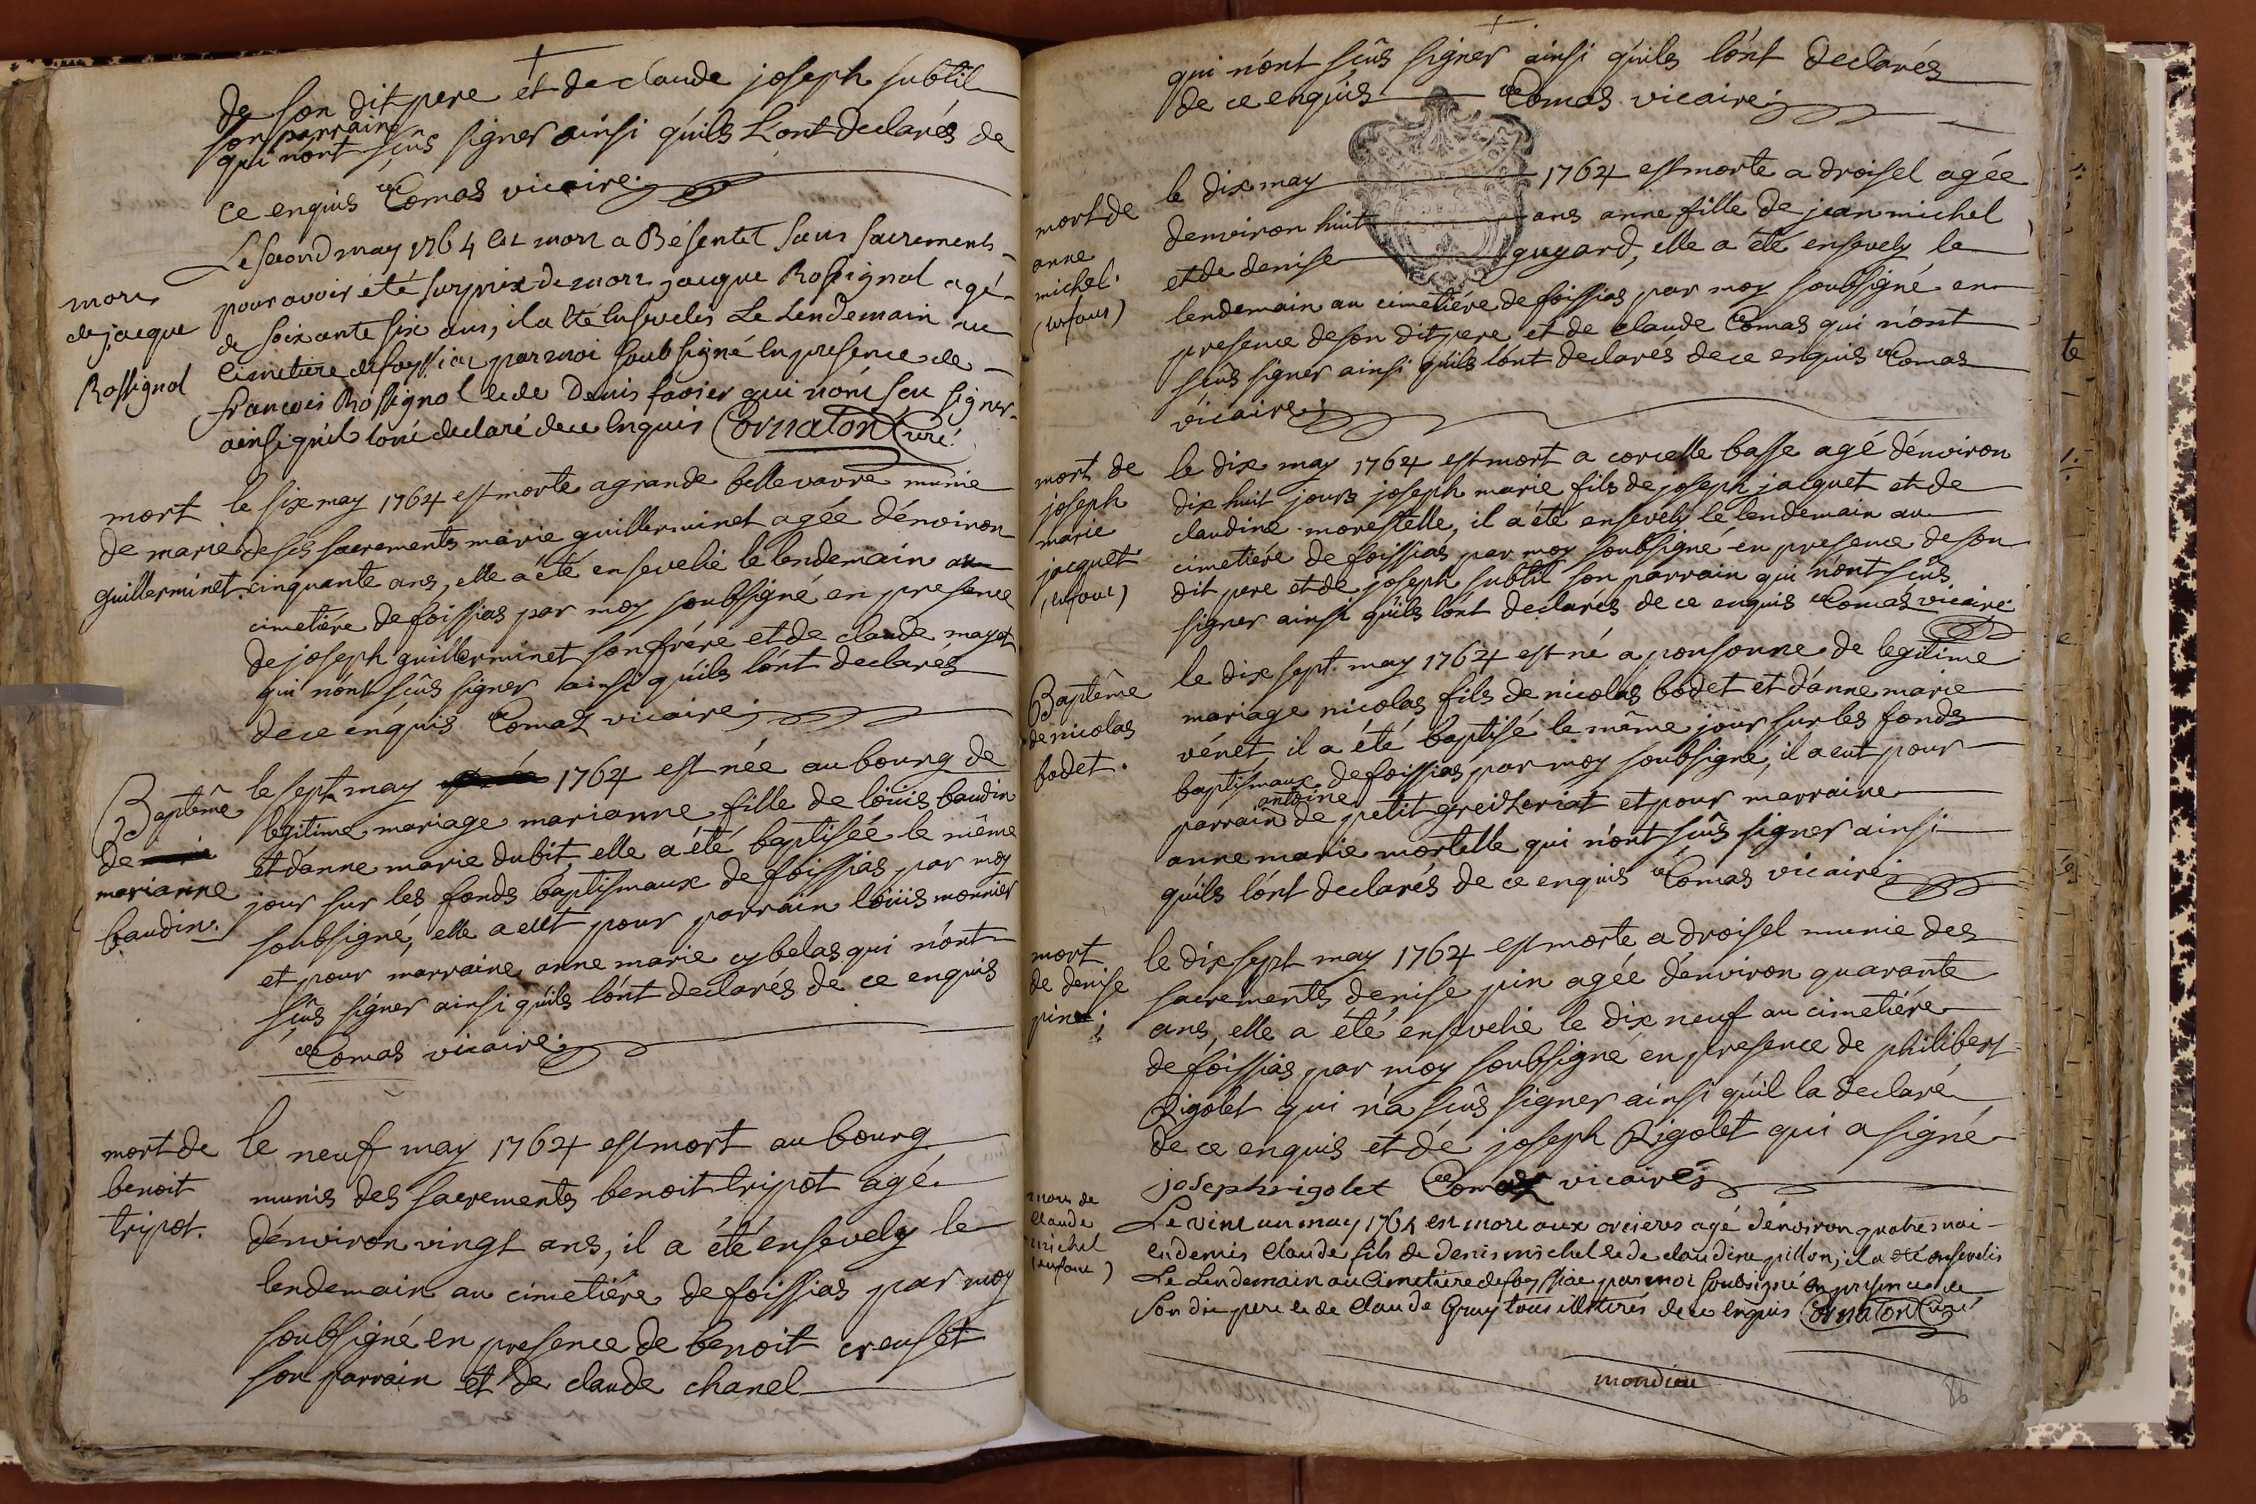 de son dit pere et de claude joseph subtil
son parrain
qui n'ont scûs signer ainsi qu'ils L'ont declarés de
ce enquis Comas vicaire
mort de jacque Rossignol
Le second may 1764 est mort a Bésentet sans sacrements
pour avoir été surprix de mort jacque Rossignol agé
de soixante six ans, il a été Ensevelis Le Lendemain au
Cimetiere de foyssiat par moi soubsigné En presence de
francois Rossignol et de Denis favier qui n'ont seu signer
ainsi qu'il l'ont declaré de ce Enquis Cornaton Curé
mort de marie guillerminet
le six may 1764 est morte a grande bellevavre munie
de ses sacrements marie guillerminet agée d'environ
cinquante ans, elle a été ensevelie le lendemain au
cimetiére de foissias par moy soubsigné en presence
de joseph guillerminet son frére et de claude mayet
qui n'ont scûs signer ainsi qu'ils l'ont declarés
de ce enquis Comas vicaire
Baptême de marianne baudin.
le sept may 1764 est née au bourg de
legitime mariage marianne fille de löuis baudin
et d'anne marie dubit, elle a été baptisée le même
jour sur les fonds baptismaux de foissias par moy
soubsigné, elle a eut pour parrain löuis monnier
et pour marraine anne marie cybelas qui n'ont
scûs signer ainsi qu'ils l'ont declarés de ce enquis
Comas vicaire
mort de benoit tripot.
le neuf may 1764 est mort au bourg
munis des sacrements benoit tripot agé
d'environ vingt ans, il a été ensevely le
lendemain au cimetiére de foissias par moy
soubsigné en presence de benoit creuset
son parrain et de claude chanel
qui n'ont scûs signer ainsi qu'ils l'ont declarés
de ce enquis Comas vicaire
mort de anne michel. (enfant)
le dix may 1764 est morte a droisel agée
d'environ huit ans anne fille de jean michel
et de denise guyard, elle a été ensevely le
lendemain au cimetiére de foissias par moy soubsigné en
presence de son dit pere et de claude Comas qui n'ont
scûs signer ainsi qu'ils l'ont declarés de ce enquis Comas
vicaire
mort de joseph marie jacquet (enfant)
le dix may 1764 est mort a corcelle basse agé d'environ
dix huit jours joseph marie fils de joseph jacquet et de
claudine morestelle, il a été ensevely le lendemain au
cimetiére de foissias par moy soubsigné en presence de son
dit pere et de joseph subtil son parrain qui n'ont scûs
signer ainsi qu'ils l'ont declarés de ce enquis Comas vicaire
Baptême de nicolas bodet.
le dix sept may 1764 est né a ponsonne de legitime
mariage nicolas fils de nicolas bodet et d'anne marie
vénet, il a été baptisé le même jour sur les fonds
baptismaux de foissias par moy soubsigné, il a eut pour
parrain antoine de petit greitheriat et pour marraine
anne marie mortelle qui n'ont scûs signer ainsi
qu'ils l'ont declarés de ce enquis Comas vicaire
mort de denise pin
le dix sept may 1764 est morte a droisel munie des
sacrements denise pin agée d'environ quarante
ans, elle a été ensevelie le dix neuf au cimetiére
de foissias par moy soubsigné en presence de philibert
Rigolet qui n'a scûs signer ainsi qu'il la declaré
de ce enquis et de joseph Rigolet qui a signé
joseph rigolet Comas vicaire
mort de claude michel (enfant)
Le vint un may 1764 est mort aux orcieres agé d'environ quatre moi
endemis Claude fils de denis michel et de claudine pillon, il a été ensevelis
Le Lendemain au Cimetiere de foyssiat par moi soubsigné en presence de
son dit pere et de Claude Gruy tous illiterés de ce Enquis Cornaton Curé
mondieu
86